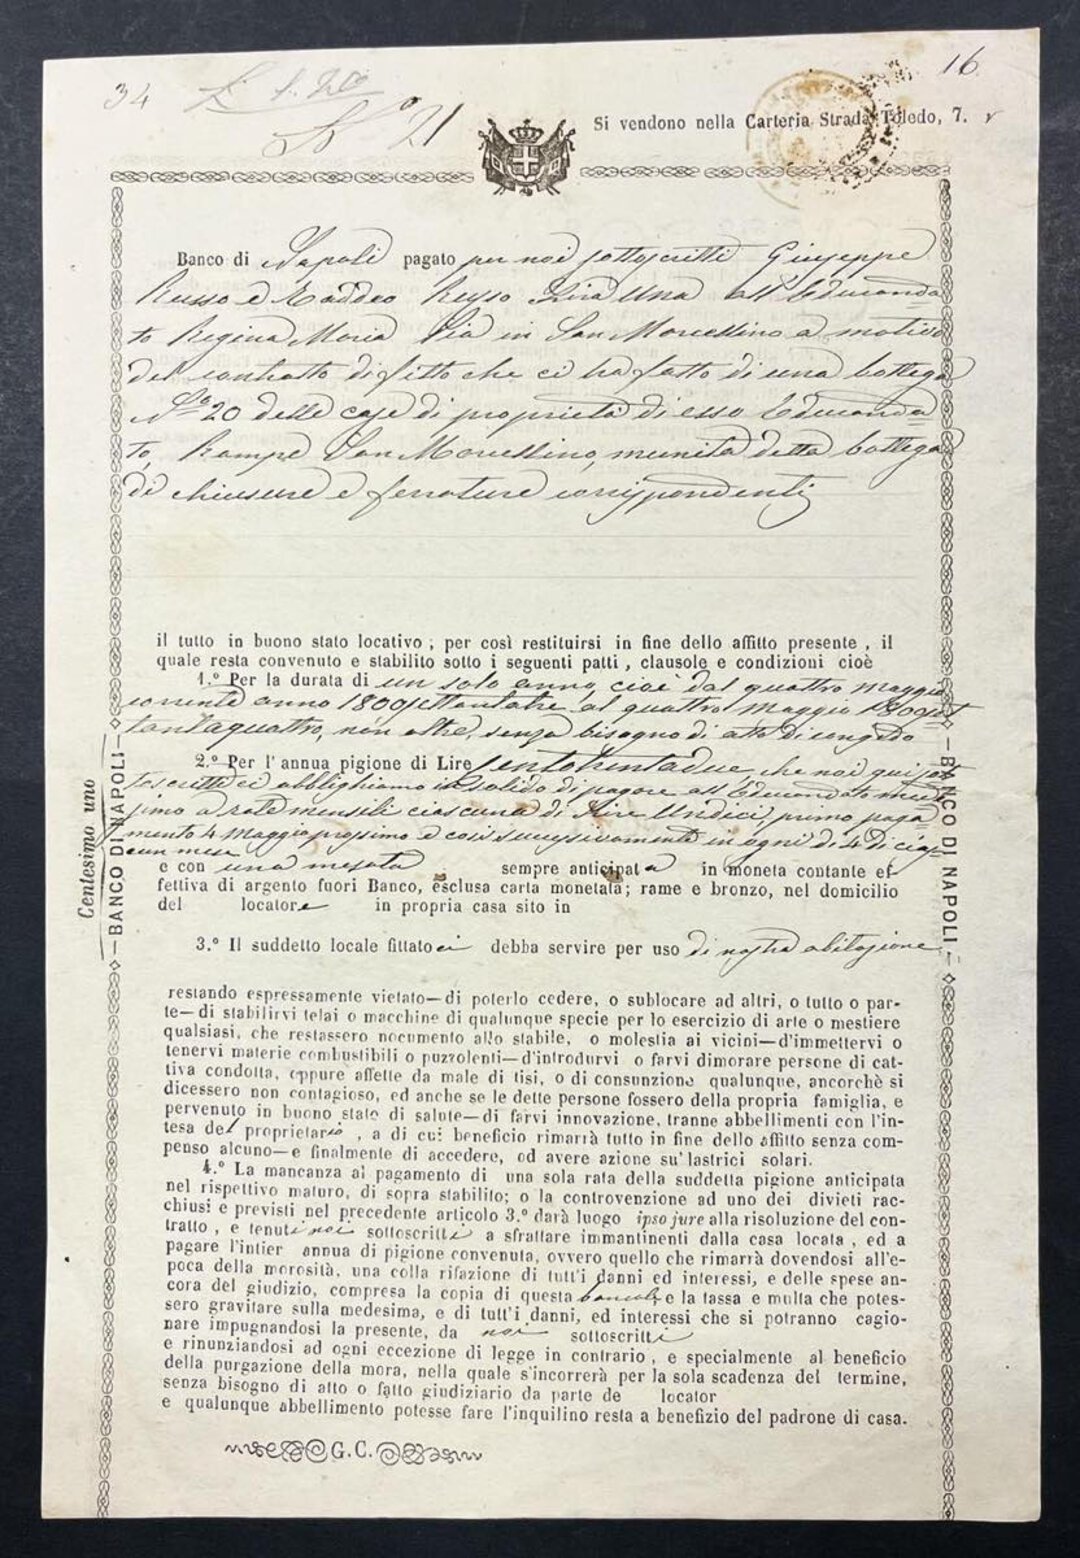 34
16
N.º 21
Si vendono nella Carteria Strada Toledo, 7.
Banco di Napoli pagato per noi sottoscritti Giuseppe
Russo e Taddeo Russo Lira una all'Educanda-
to Regina Maria Pia in San Marcellino a motivo
del contratto di fitto che ci ha fatto di una bottega
Nº 20 delle case di proprietà di esso Educanda-
to, Rampe San Marcellino, munita detta bottega
di chiusure e serrature corrispondenti
il tutto in buono stato locativo ; per così restituirsi in fine dello affitto presente , il
quale resta convenuto e stabilito sotto i seguenti patti , clausole e condizioni cioè
1.º Per la durata di un solo anno, cioè dal quattro Maggio
corrente anno 1800settantatre al quattro Maggio 1800set
tantaquattro, non oltre, senza bisogno di atto di congedo
2.º Per l'annua pigione di Lire Centotrentadue, che noi qui sot
toscritti ci obblighiamo in solido di pagare all'Educandato mede
simo a rate mensili ciascuna di Lire Undici, primo paga
mento 4 Maggio prossimo e così successivamente in ogni dì 4 di cias-
cun mese
e con una mesata sempre anticipata in moneta contante ef-
fettiva di argento fuori Banco, esclusa carta monetata; rame e bronzo, nel domicilio
del locatore in propria casa sito in
3.º Il suddetto locale fittatoci debba servire per uso di nostra abitazione
restando espressamente vietato—di poterlo cedere, o sublocare ad altri, o tutto o par-
te—di stabilirvi telai o macchine di qualunque specie per lo esercizio di arte o mestiere
qualsiasi, che restassero nocumento allo stabile, o molestia ai vicini—d'immettervi o
tenervi materie combustibili o puzzolenti—d'introdurvi o farvi dimorare persone di cat-
tiva condotta, oppure affette da male di tisi, o di consunzione qualunque, ancorchè si
dicessero non contagioso, ed anche se le dette persone fossero della propria famiglia, e
pervenuto in buono stato di salute—di farvi innovazione, tranne abbellimenti con l'in-
tesa del proprietario , a di cui beneficio rimarrà tutto in fine dello affitto senza com-
penso alcuno—e finalmente di accedere, od avere azione su' lastrici solari.
4.º La mancanza al pagamento di una sola rata della suddetta pigione anticipata
nel rispettivo maturo, di sopra stabilito; o la controvenzione ad uno dei divieti rac-
chiusi e previsti nel precedente articolo 3.º darà luogo ipso jure alla risoluzione del con-
tratto , e tenuti noi sottoscritti a sfrattare immantinenti dalla casa locata, ed a
pagare l'intier annua di pigione convenuta, ovvero quello che rimarrà dovendosi all'e-
poca della morosità, una colla rifazione di tutt'i danni ed interessi, e delle spese an-
cora del giudizio, compresa la copia di questa bancale, e la tassa e multa che potes-
sero gravitare sulla medesima, e di tutt'i danni, ed interessi che si potranno cagio-
nare impugnandosi la presente, da noi sottoscritti
e rinunziandosi ad ogni eccezione di legge in contrario , e specialmente al beneficio
della purgazione della mora, nella quale s'incorrerà per la sola scadenza del termine,
senza bisogno di atto o fatto giudiziario da parte de locator
e qualunque abbellimento potesse fare l'inquilino resta a benefizio del padrone di casa.
G. C.
Centesimo uno
BANCO DI NAPOLI
BANCO DI NAPOLI